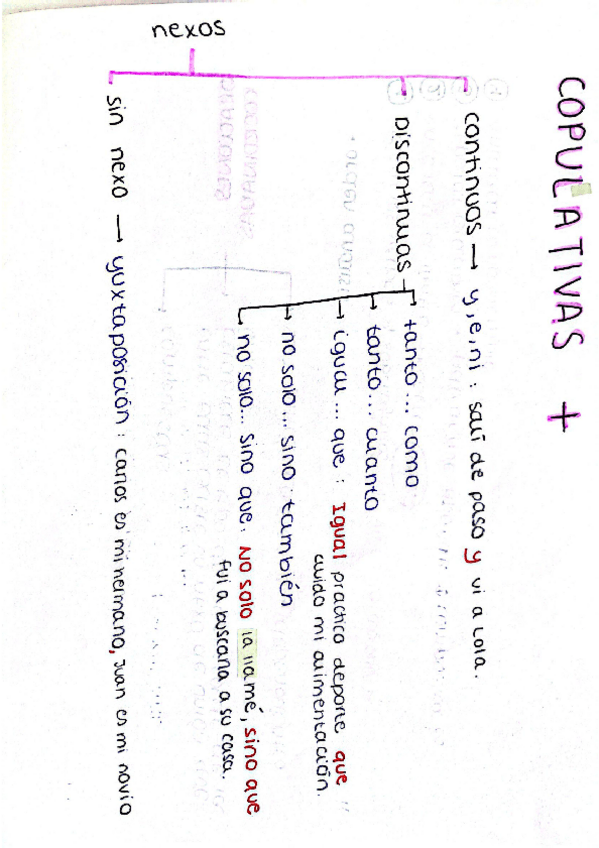 COPULATIVAS +
nexos
continuos → y, e, ni : salí de paso y vi a Lola.
Discontinuas
→ tanto ... como
→ tanto ... cuanto
→ igual ... que : Igual practico deporte que
cuido mi alimentación.
→ no solo ... sino también
→ no solo ... sino que : No solo la llamé, sino que
fui a buscarla a su casa.
sin nexo → yuxtaposición : carlos es mi hermano, Juan es mi novio